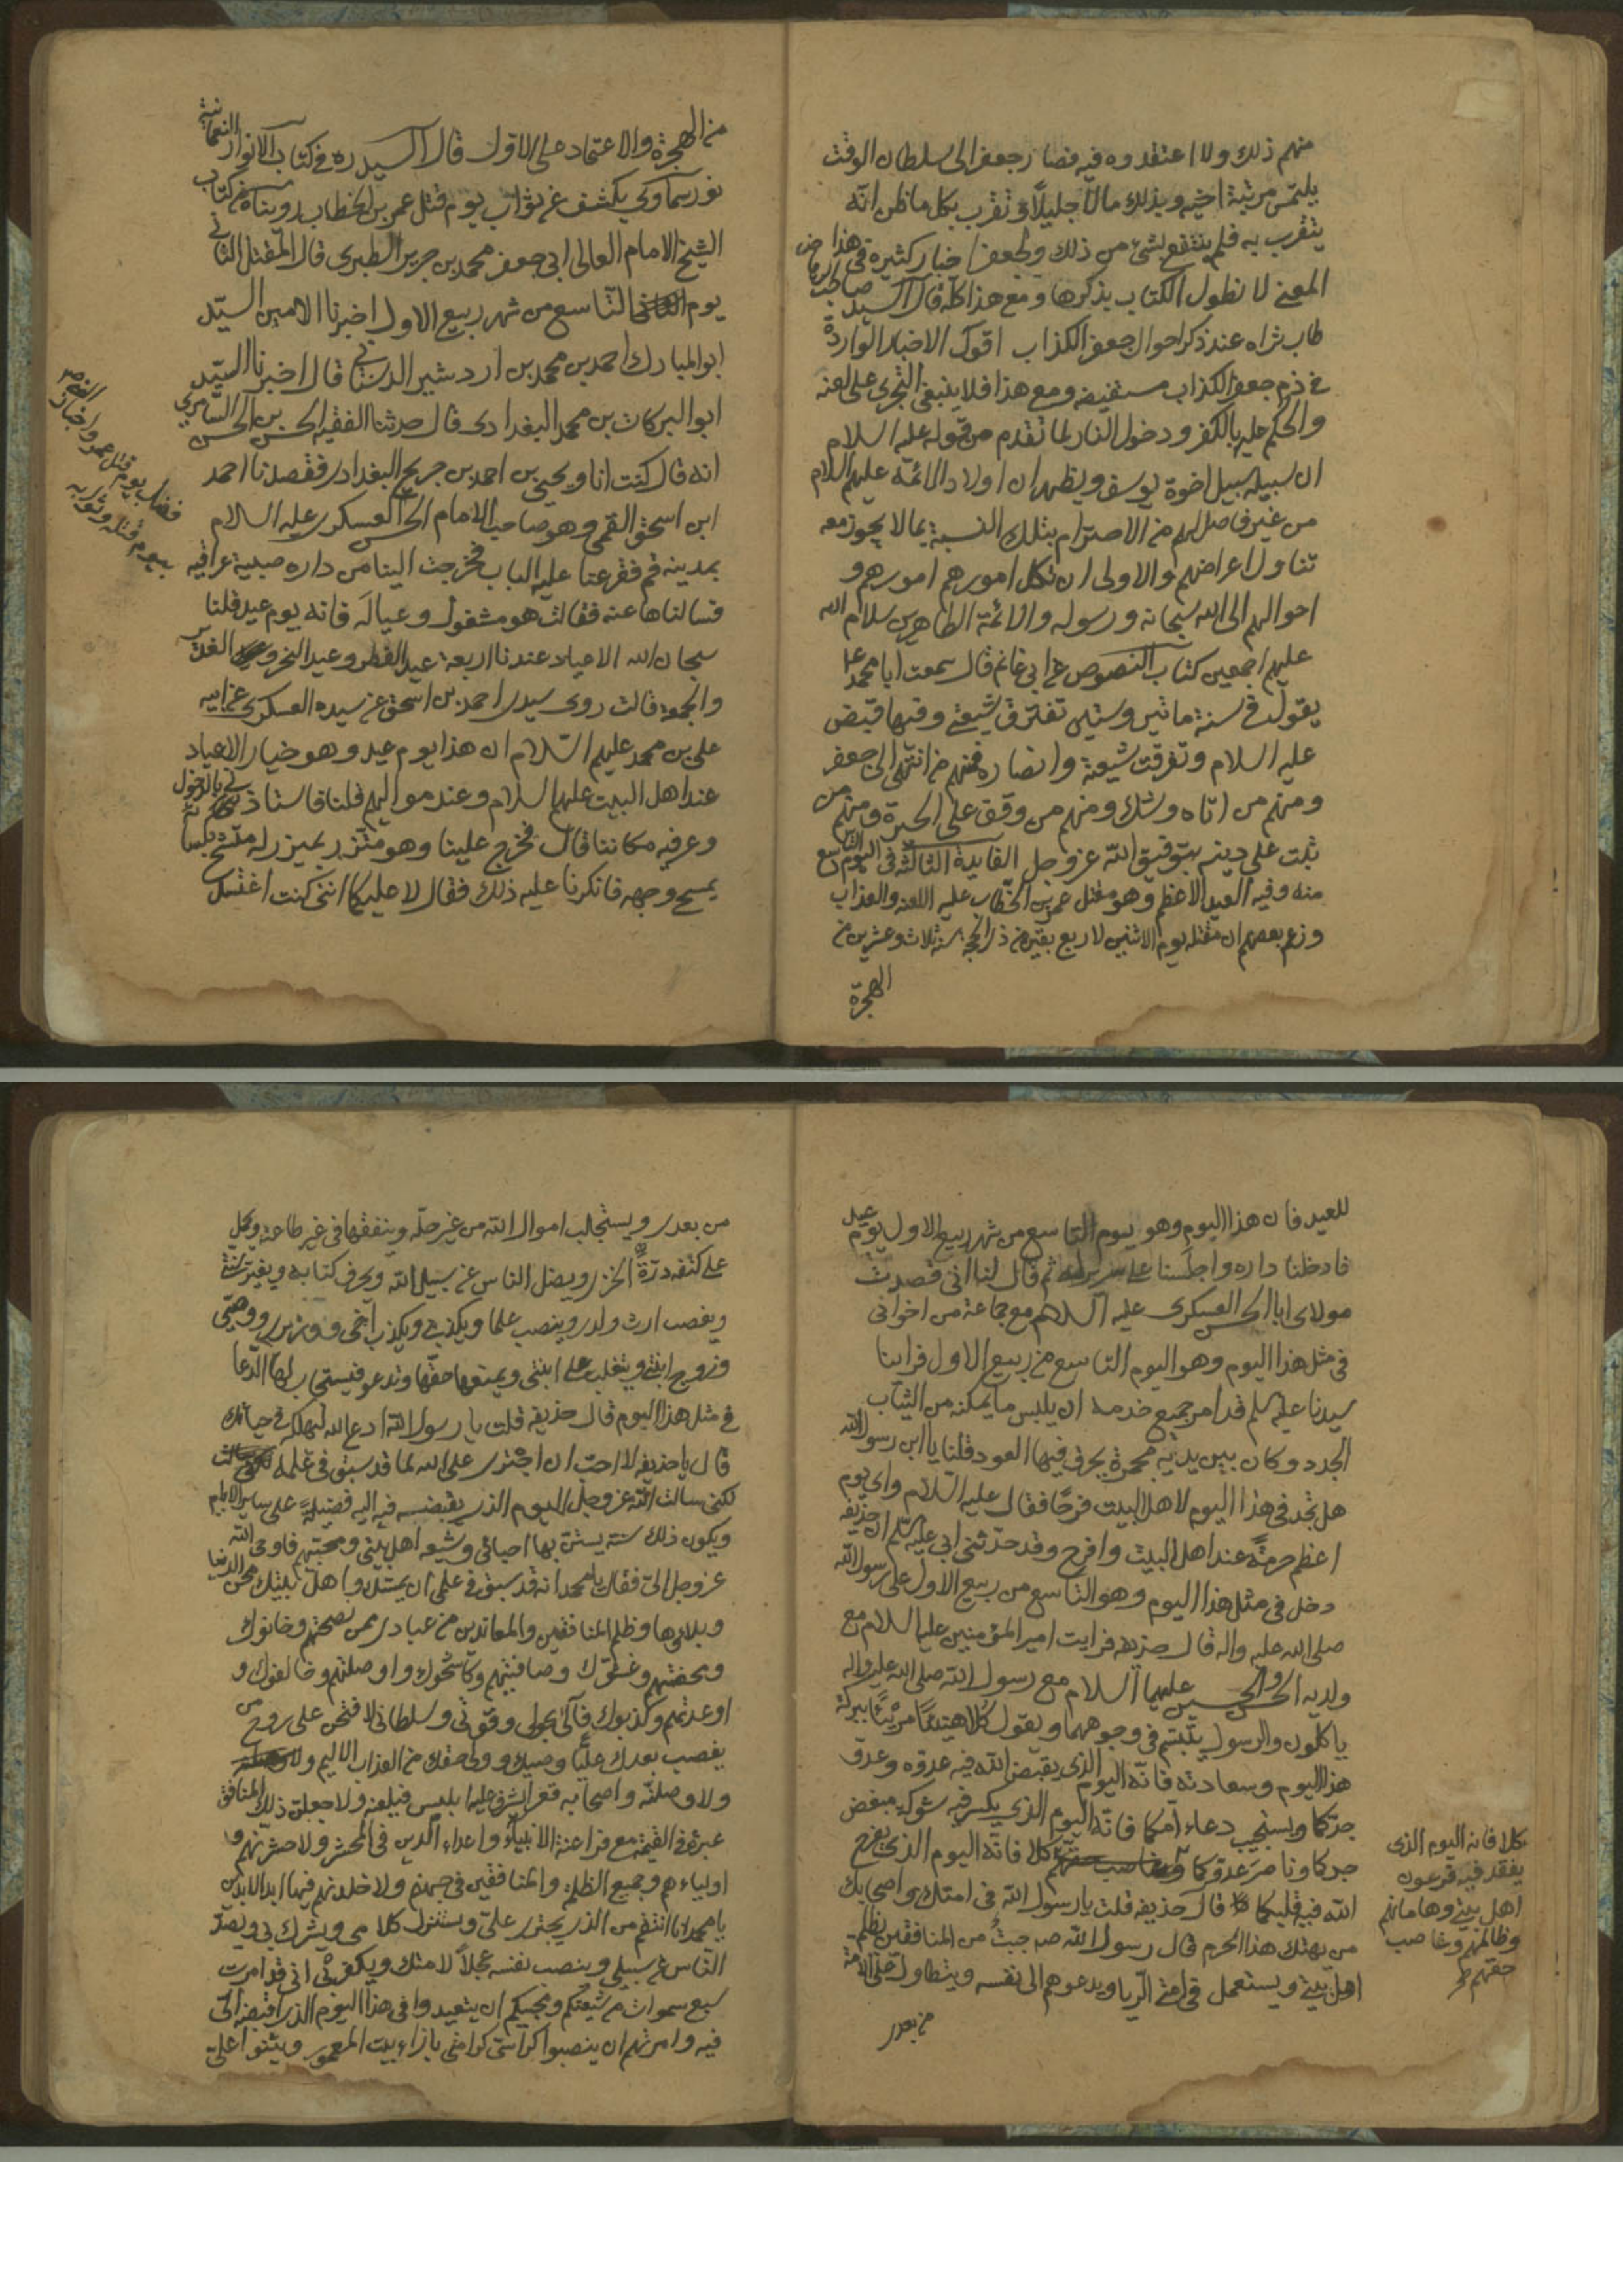 منهم ذلك ولا اعتقدوه فيه فصار جعفر الى سلطان الوقت
يلتمس مرتبة اخيه وبذل مالا جليلا وتقرب بكل ما ظن انه
يتقرب به فلم ينتفع بشئ من ذلك ولجعفر اخبار كثيرة في هذا
المعنى لا نطول الكتاب بذكرها ومع هذا كله قال السيد صاحب
طاب ثراه عند ذكر احوال جعفر الكذاب اقول الاخبار الواردة
في ذم جعفر الكذاب مستفيضه ومع هذا فلا ينبغي التجري على لعنه
والحكم عليه بالكفر ودخول النار لما تقدم من قوله عليه السلام
ان سبيله سبيل اخوة يوسف ويظهر ان اولاد الائمة عليهم السلام
من غير فاصل لهم من الاحترام بتلك النسبة بما لا يجوز معه
تناول اعراضهم والاولى ان نكل امورهم امورهم و
احوالهم الى الله سبحانه ورسوله والائمة الطاهرين سلام الله
عليهم اجمعين كتاب النصوص عن ابي غانم قال سمعت ابا محمد ع
يقول في سنة ماتين وستين تفترق شيعتي وفيها قبض
عليه السلام وتفرقت شيعته وانصاره فمنهم من انتهى الى جعفر
ومنهم من اتاه وشك ومنهم من وقف على الحيرة ومنهم من
ثبت على دينه بتوفيق الله عز وجل الفايدة الثالثة في اليوم التاسع
منه وفيه العيد الاعظم وهو مقتل عمر بن الخطاب عليه اللعنه والعذاب
وزعم بعضهم ان مقتله يوم الاثنين لاربع بقين من ذي الحجة سنة ثلاث وعشرين من
الهجرة
من الهجرة والاعتماد على الاول قال السيد ره في كتاب الانوار النعمانية
نور سماوي يكشف عن ثواب يوم قتل عمر بن الخطاب رويناه من كتاب
الشيخ الامام العالم ابي جعفر محمد بن جرير الطبري قال المقتل الثاني
يوم التاسع من شهر ربيع الاول اخبرنا الامين السيد
ابو المبارك احمد بن محمد بن اردشير الدستاني قال اخبرنا السيد
ابو البركات بن محمد البغدادي قال حدثنا الفقيه الحسن بن الحسن السامري
انه قال كنت انا ويحيى بن احمد بن جريح البغدادي فقصدنا احمد
ابن اسحق القمي وهو صاحب الامام الحسن العسكري عليه السلام
بمدينة قم فقرعنا عليه الباب فخرجت الينا من داره صبية عراقيه
فسالناها عنه فقالت هو مشغول وعياله فانه يوم عيد قلنا
سبحان الله الاعياد عندنا اربعة عيد الفطر وعيد النحر والغدير
والجمعة قالت روى سيدي احمد بن اسحق عن سيده العسكري عن ابيه
على بن محمد عليهم السلام ان هذا يوم عيد وهو خيار الاعياد
عند اهل البيت عليهم السلام وعند مواليهم قلنا فاستاذني بالدخول
وعرفيه مكاننا قال فخرج علينا وهو متزر بميزر له متشح بكساء
يمسح وجهه فانكرنا عليه ذلك فقال لا عليكما انني كنت اغتسل
فضل يوم قتل عمر واخبار
للعيد فان هذا اليوم وهو يوم التاسع من شهر ربيع الاول يوم عيد
فادخلنا داره واجلسنا على سرير له ثم قال لنا اني قصدت
مولاي ابا الحسن العسكري عليه السلام مع جماعة من اخواني
في مثل هذا اليوم وهو اليوم التاسع من ربيع الاول فراينا
سيدنا عليه سلم قد امر جميع خدمه ان يلبس ما يمكنه من الثياب
الجدد وكان بين يديه مجمرة يحرق فيها العود قلنا يا ابن رسول الله
هل تجد في هذا اليوم لاهل البيت فرحا فقال عليه السلام واي يوم
اعظم حرمة عند اهل البيت وافرح وقد حدثني ابي عليه سلم ان حذيفة
دخل في مثل هذا اليوم وهو التاسع من ربيع الاول على رسول الله
صلى الله عليه واله قال حذيفة فرايت امير المؤمنين عليه السلام مع
ولديه الحسن والحسين عليهما السلام مع رسول الله صلى الله عليه واله
ياكلون والرسول يتبسم في وجوههما ويقول كلا هنيئا مريئا ببركة
هذا اليوم وسعادته فانه اليوم الذي يقبض الله فيه عدوه وعدو
جدكما ويستجيب دعاء امكما فانه اليوم الذي يكسر فيه شوكة مبغض
جدكما وناصر عدوكما كلا فانه اليوم الذي يفرح
الله فيه قلبكما قال حذيفه قلت يا رسول الله في امتك واصحابك
من يهتك هذا الحرم قال رسول الله ص جبت من المنافقين يظلم
اهل بيتي ويستعمل في امتي الربا ويدعوهم الى نفسه ويتطاول على الامة
من بعدي
كلا فانه اليوم الذي
يفقد فيه فرعون
اهل بيتي وهامانهم
وظالمهم وغاصب
حقهم
من بعدي ويستجلب اموال الله من غير حله وينفقها في غير طاعته ويحمل
على كتفه درة الخزي ويضل الناس عن سبيل الله ويحرف كتابه ويغير سنتي
ويغصب ارث ولدي وينصب علما ويكذبني ويكذب اخي ووزيري ووصيي
وزوج ابنتي ويتغلب على ابنتي ويمنعها حقها وتدعو فيستجاب لها الدعا
في مثل هذا اليوم قال حذيفه قلت يا رسول الله ادع الله ليهلكه في حياتك
قال يا حذيفه لا احب ان اجتري على الله لما قد سبق في علمه
لكني سالت الله عز وجل اليوم الذي يقبضه فيه اليه فضيلة على ساير الايام
ويكون ذلك سنة يستن بها احبائي وشيعة اهل بيتي ومحبيهم فاوحى الله
عز وجل الي فقال يا محمد انه قد سبق في علمي ان يمسك واهل بيتك محن الدنيا
وبلاؤها وظلم المنافقين والمعاندين من عبادي ممن نصحتهم وخانوك
ومحضتهم وغشوك وصافيتهم وكاشحوك واوصلتهم وخالفوك و
اوعدتهم وكذبوك فاني بحولي وقوتي وسلطاني لافتحن على روح من
يغصب بعدك عليا وصيك وولي حقك من العذاب الاليم
ولاوصلنه واصحابه قعرا يشرف عليه ابليس فيلعنه ولاجعلن ذلك المنافق
عبرة في القيمة مع فراعنة الانبياء واعداء الدين في المحشر ولاحشرنهم و
اولياءهم وجميع الظلمة والمنافقين في جهنم ولاخلدنهم فيها ابد الابدين
يا محمد انا انتقم من الذي يجتري علي ويستنزل كلامي ويشرك بي ويصد
الناس عن سبيلي وينصب نفسه عجلا لامتك ويكفر بي اني قد امرت
سبع سموات من شيعتكم ومحبيكم ان يتعيدوا في هذا اليوم الذي اقبضه الي
فيه وامرتهم ان ينصبوا كراسي كرامتي بازاء بيت المعمور ويثنوا علي